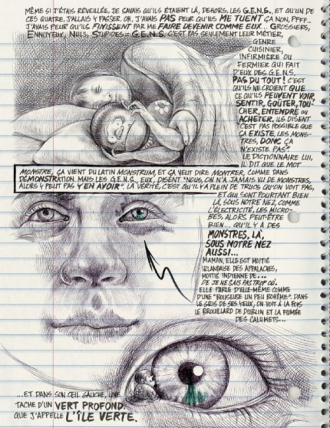 MÊME SI J'ÉTAIS RÉVEILLÉE, JE SAVAIS QU'ILS ÉTAIENT LÀ, DEHORS, LES G.E.N.S, ET QU'UN DE
CES QUATRE, J'ALLAIS Y PASSER. OH, J'AVAIS PAS PEUR QU'ILS ME TUENT ÇA NON, PFFF...
J'AVAIS PEUR QU'ILS FINISSENT PAR ME FAIRE DEVENIR COMME EUX. GROSSIERS,
ENNUYEUX, NULS, STUPIDES... G.E.N.S. C'EST PAS SEULEMENT LEUR MÉTIER,
GENRE
CUISINIER,
INFIRMIÈRE OU
FERMIER QUI FAIT
D'EUX DES G.E.N.S.
PAS DU TOUT ! C'EST
QU'ILS NE CROIENT QUE
CE QU'ILS PEUVENT VOIR,
SENTIR, GOÛTER, TOU-
CHER, ENTENDRE OU
ACHETER, ILS DISENT
C'EST PAS POSSIBLE QUE
ÇA EXISTE, LES MONS-
TRES, DONC ÇA
N'EXISTE PAS.
LE DICTIONNAIRE LUI,
IL DIT QUE LE MOT
MONSTRE, ÇA VIENT DU LATIN MONSTRUM, ET ÇA VEUT DIRE MONTRER, COMME DANS
DÉMONSTRATION. MAIS LES G.E.N.S, EUX, DISENT "NOUS, ON N'A JAMAIS VU DE MONSTRES,
ALORS Y PEUT PAS Y EN AVOIR". LA VÉRITÉ, C'EST QU'IL Y A PLEIN DE TRUCS QU'ON VOIT PAS,
ET QUI SONT POURTANT BIEN
LÀ, SOUS NOTRE NEZ, COMME
L'ÉLECTRICITÉ, LES MICRO-
BES, ALORS, PEUT-ÊTRE
BIEN... QU'IL Y A DES
MONSTRES, LÀ,
SOUS NOTRE NEZ
AUSSI...
MAMAN, ELLE EST MOITIÉ
IRLANDAISE DES APPALACHES,
MOITIÉ INDIENNE DE...
DE JE NE SAIS PAS TROP OÙ.
ELLE PARLE D'ELLE-MÊME COMME
D'UNE "BOUSEUSE UN PEU BOHÈME". DANS
LE GRIS DE SES YEUX, ON VOIT À LA FOIS
LE BROUILLARD DE DUBLIN ET LA FUMÉE
DES CALUMETS...
...ET DANS SON ŒIL GAUCHE, UNE
TACHE D'UN VERT PROFOND
QUE J'APPELLE L'ÎLE VERTE.